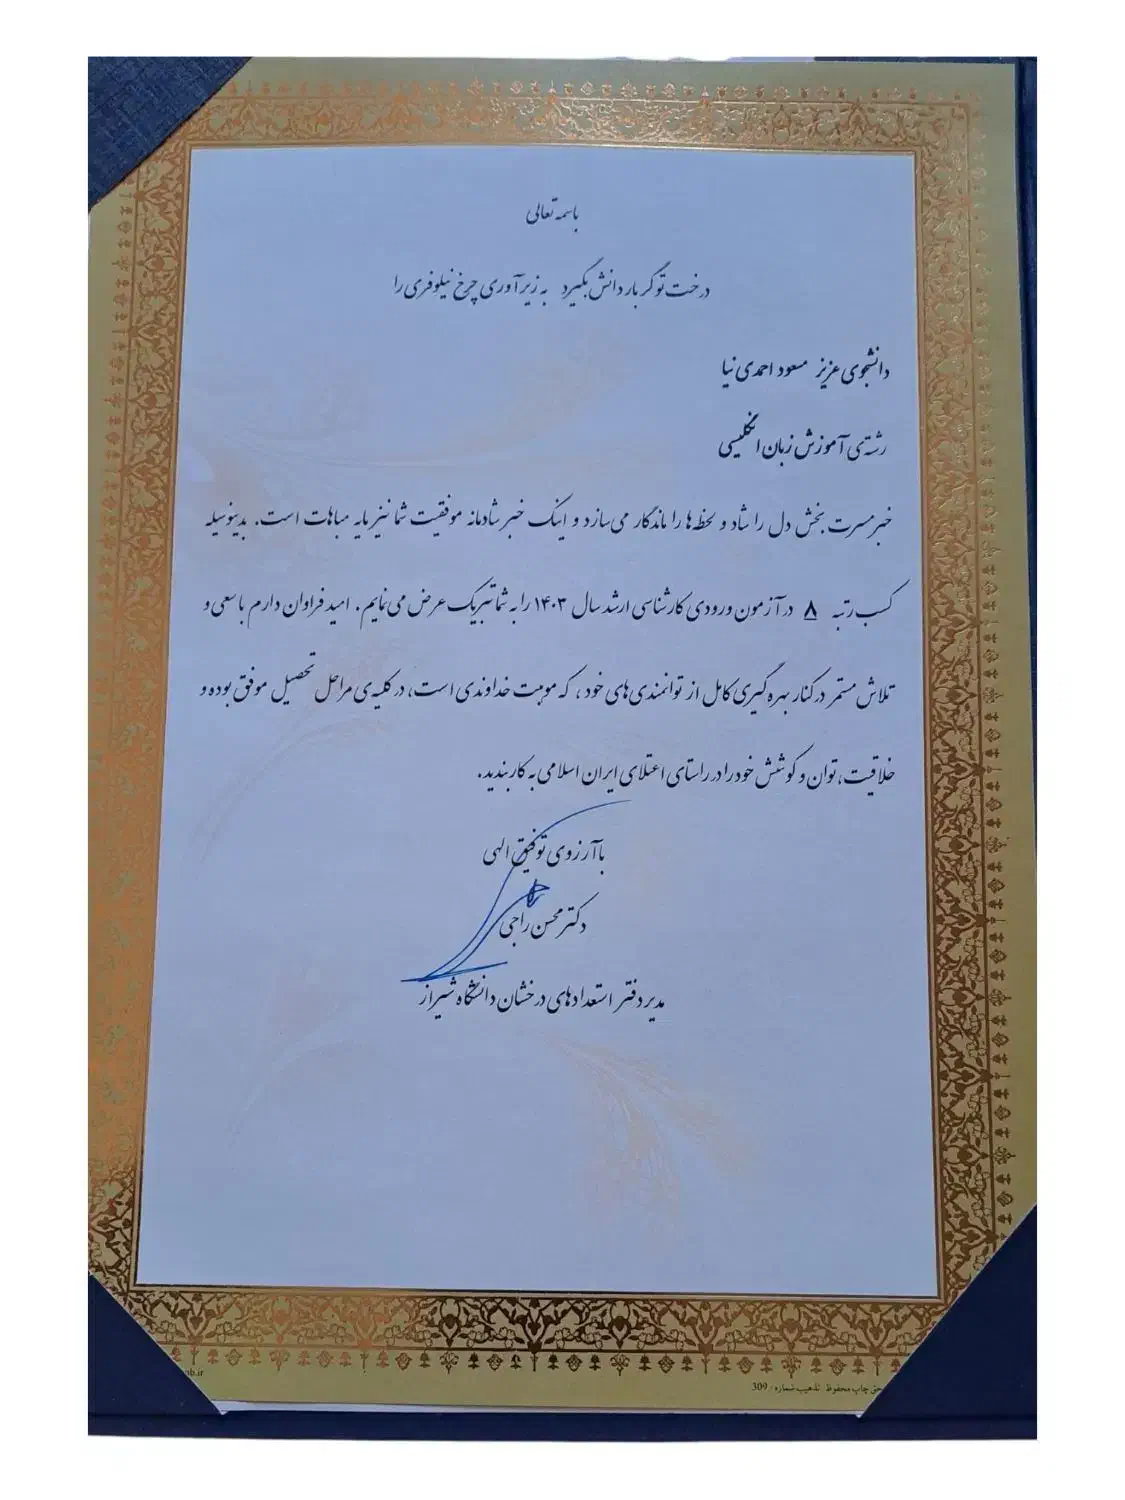 باسمه تعالی
درخت تو گر بار دانش بگیرد به زیر آوری چرخ نیلوفری را
دانشجوی عزیز مسعود احمدی نیا
رشته‌ی آموزش زبان انگلیسی
خبر مسرت بخش دل را شاد و لحظه‌ها را ماندگار می‌سازد و اینک خبر شادمانه موفقیت شما نیز مایه مباهات است. بدینوسیله
کسب رتبه ۸ در آزمون ورودی کارشناسی ارشد سال ۱۴۰۳ را به شما تبریک عرض می‌نمایم. امید فراوان دارم با سعی و
تلاش مستمر در کنار بهره گیری کامل از توانمندی‌های خود، که موهبت خداوندی است، در کلیه‌ی مراحل تحصیل موفق بوده و
خلاقیت، توان و کوشش خود را در راستای اعتلای ایران اسلامی به کار بندید.
با آرزوی توفیق الهی
دکتر محسن راجی
مدیر دفتر استعدادهای درخشان دانشگاه شیراز
حق چاپ محفوظ تذهیب شماره: 309